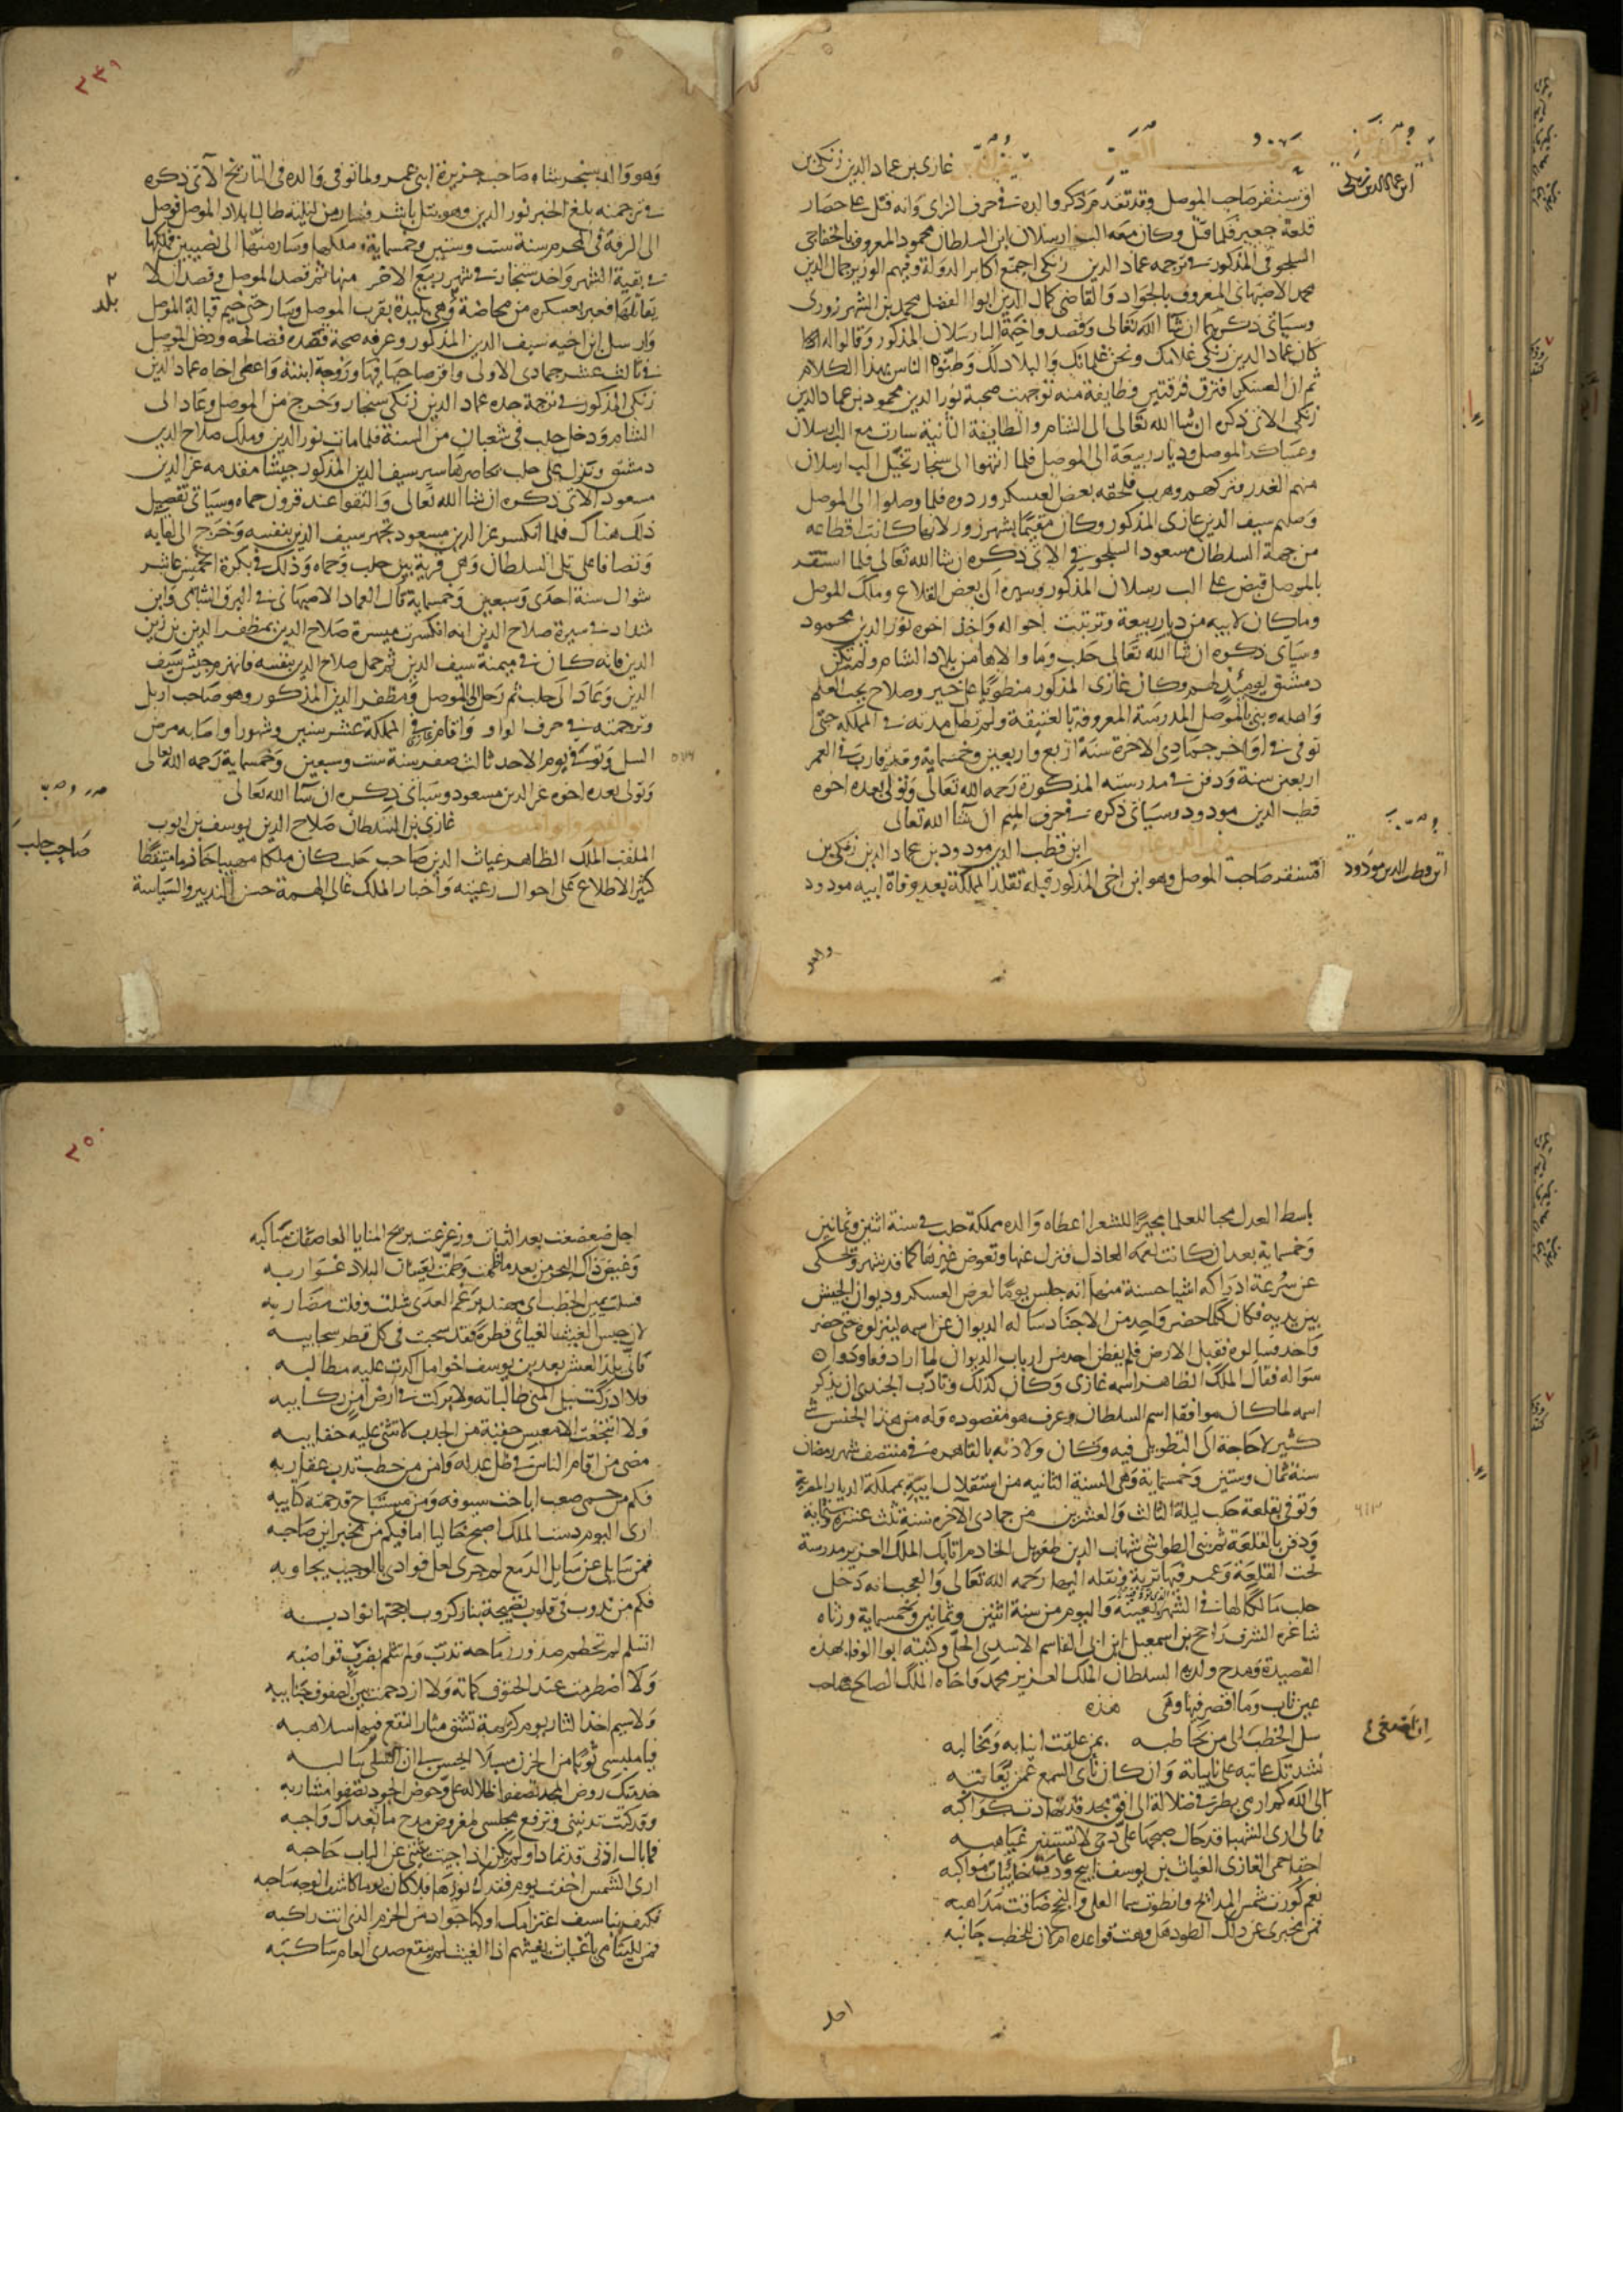 حرف الغين
غازي بن عماد الدين زنكي بن
ابن عماد الدين زنكي
اقسنقر صاحب الموصل وقد تقدم ذكر والده في حرف الزاي وانه قتل على حصار
قلعة جعبر فلما قتل وكان معه الب ارسلان ابن السلطان محمود المعروف بالخفاجي
السلجوقي المذكور في ترجمه عماد الدين زنكي اجتمع اكابر الدولة وفيهم الوزير جمال الدين
محمد الاصبهاني المعروف بالجواد والقاضي كمال الدين ابوا الفضل محمد بن الشهرزوري
وسياتي ذكرهما ان شا الله تعالى وقصدوا خيمة الب ارسلان المذكور وقالوا له
كان عماد الدين زنكي غلامك ونحن غلمانك والبلاد لك وطمنوا الناس بهذا الكلام
ثم ان العسكر افترق فرقتين فطايفة منه توجهت صحبة نور الدين محمود بن عماد الدين
زنكي الاتي ذكره ان شا الله تعالى الى الشام والطايفة الثانية سارت مع الب ارسلان
وعساكر الموصل وديار ربيعة الى الموصل فلما انتهوا الى سنجار تخيل الب ارسلان
منهم الغدر فتركهم وهرب فلحقه بعض العسكر وردوه فلما وصلوا الى الموصل
وصلهم سيف الدين غازي المذكور وكان مقيما بشهرزور لانها كانت اقطاعه
من جهة السلطان مسعود السلجوقي الاتي ذكره ان شا الله تعالى فلما استقر
بالموصل قبض على الب رسلان المذكور وسيره الى بعض القلاع وملك الموصل
وما كان لابيه من ديار ربيعة وترتبت احواله واخذ اخوه نور الدين محمود
وسياتي ذكره ان شا الله تعالى حلب وما والاها من بلاد الشام ولم تكن
دمشق يومئذ لهم وكان غازي المذكور منطويا على خير وصلاح يحب العلم
واهله وبنى بالموصل المدرسة المعروفة بالعتيقة ولم تطل مدته في المملكة حتى
توفي في اواخر جمادى الاخرة سنة اربع واربعين وخمسماية وقد قارب في العمر
اربعين سنة ودفن في مدرسته المذكورة رحمه الله تعالى وتولى بعده اخوه
قطب الدين مودود وسياتي ذكره في حرف الميم ان شا الله تعالى
سيف الدين غازي ابن قطب الدين مودود بن عماد الدين زنكي بن
ابن قطب الدين مودود
اقسنقر صاحب الموصل وهو ابن اخي المذكور قبله تقلد المملكة بعد وفاة ابيه مودود
وهو
٣٤٩
وهو والد سنجر شاه صاحب جزيرة ابن عمر ولما توفي والده في التاريخ الآتي ذكره
في ترجمته بلغ الخبر نور الدين وهو بتل باشر فسار من ليلته طالبا بلاد الموصل فوصل
الى الرقة في المحرم سنة ست وستين وخمسماية وملكها وسار منها الى نصيبين فملكها
في بقية الشهر واخذ سنجار في شهر ربيع الاخر منها ثم قصد الموصل وقصد ان لا
يقاتلها فعبر بعسكره من مخاضة وهي بليدة بقرب الموصل وسار حتى خيم قبالة الموصل
بلد
وارسل ابن اخيه سيف الدين المذكور وعرفه صحة قصده فصالحه ودخل الموصل
في ثالث عشر جمادى الاولى واقر صاحبها فيها وزوجه ابنته واعطى اخاه عماد الدين
زنكي المذكور في ترجمة جده عماد الدين زنكي سنجار وخرج من الموصل وعاد الى
الشام ودخل حلب في شعبان من السنة فلما مات نور الدين وملك صلاح الدين
دمشق ونزل على حلب يحاصرها سير سيف الدين المذكور جيشا مقدمه عز الدين
مسعود الاتي ذكره ان شا الله تعالى والتقوا عند قرون حماه وسياتي تفصيل
ذلك هناك فلما انكسر عز الدين مسعود تجهز سيف الدين بنفسه وخرج الى لقايه
وتصافا على تل السلطان وهي قرية بين حلب وحماه وذلك في بكرة الخميس عاشر
شوال سنة احدى وسبعين وخمسماية قال العماد الاصبهاني في البرق الشامي وابن
شداد في سيرة صلاح الدين انه انكسرت ميسرة صلاح الدين بمظفر الدين بن زين
الدين فانه كان في ميمنة سيف الدين ثم حمل صلاح الدين بنفسه فانهزم جيش سيف
الدين وعاد الى حلب ثم رحل الى الموصل ومظفر الدين المذكور وهو صاحب اربل
وترجمته في حرف الواو واقام غازي في المملكة عشر سنين وشهورا واصابه مرض
السل وتوفي يوم الاحد ثالث صفر سنة ست وسبعين وخمسماية رحمه الله تعالى
٥٧٦
وتولى بعده اخوه عز الدين مسعود وسياتي ذكره ان شا الله تعالى
ابو الفتح وابو المنصور غازي بن السلطان صلاح الدين يوسف بن ايوب
صاحب حلب
الملقب الملك الظاهر غياث الدين صاحب حلب كان ملكا مهيبا حازما متيقظا
كثير الاطلاع على احوال رعيته واخبار الملك عالي الهمة حسن التدبير والسياسة
باسطا العدل محبا للعلما مجيزا للشعرا اعطاه والده مملكة حلب في سنة اثنين وثمانين
وخمسماية بعد ان كانت لعمه العادل فنزل عنها وتعوض غيرها كما قد شهر وتحكى
عن سرعة ادراكه اشيا حسنة منها انه جلس يوما لعرض العسكر وديوان الجيش
بين يديه فكان كلما حضر واحد من الاجناد ساله الديوان عن اسمه لينزلوه حتى حضر
واحد فسالوه فقبل الارض فلم يفطن احد من ارباب الديوان لما اراد فعاودوا
سواله فقال الملك الظاهر اسمه غازي وكان كذلك وتادب الجندي ان يذكر
اسمه لما كان موافقا اسم السلطان وعرف هو مقصوده وله من هذا الجنس شي
كثير لا حاجة الى التطويل فيه وكان ولادته بالقاهرة في منتصف شهر رمضان
سنة ثمان وستين وخمسماية وهي السنة الثانية من استقلال ابيه بمملكة الديار المصرية
وتوفي بقلعة حلب ليلة الثالث والعشرين من جمادى الآخرة سنة ثلث عشرة وستماية
٦١٣
ودفن بالقلعة ثم بنى الطواشي شهاب الدين طغريل الخادم اتابك الملك العزيز مدرسة
تحت القلعة وعمر فيها تربة ونقله اليها رحمه الله تعالى والعجب انه دخل
حلب مالكا لها في الشهر بعينه واليوم من سنة اثنين وثمانين وخمسماية ورثاه
شاعره الشرف راجح بن اسمعيل ابن ابي القاسم الاسدي الحلي وكنيته ابوا الوفا بهذه
القصيدة ومدح ولديه السلطان الملك العزيز محمد واخاه الملك الصالح صاحب
عين تاب وما اقصر فيها وهي هذه
سل الخطب ان اصغى الى من يخاطبه بمن علقت انيابه ومخالبه
ان اصغى
نشدتك عاتبه على نايباته وان كان نائى السمع عمن يعاتبه
الى الله كم ارمي بطرفي ضلالة الى افق مجد قد تهاوت كواكبه
فما لي ارى الشهبا قد حال صبحها على دجى لا تستنير غياهبه
احقا حمى الغازي الغياث بن يوسف ابيح وعادت خائبات مواكبه
نعم كورت شمس المدايح وانطوت سما العلى والنجح ضاقت مذاهبه
فمن مخبري عن ذلك الطود هل وهت قواعده ام لان للخطب جانبه
اجل
٣٥٠
اجل ضعضعت بعد الثبات وزعزعت بريح المنايا العاصفات مناكبه
وغيض ذاك البحر من بعد ما طمت وطمت لغيثان البلاد غواربه
فشلت يمين الخطب اي مهند برغم العدى شلت وفلت مضاربه
لان حبس الغيث الغياثي قطره فقد سحبت في كل قطر سحايبه
فانى يلذ العيش بعد بن يوسف اخوا امل اكدت عليه مطالبه
فلا ادركت نيل المنى طالباته ولا بركت في ارض امن ركايبه
ولا انتجعت الا مغيس حقبة من الجدب لا تثنى عليه حقايبه
مضى من اقام الناس في ظل عدله وامن من خطب تدب عقاربه
فكم من حمى صعب اباحت سيوفه ومن مستباح قد حمته كتايبه
ارى اليوم دست الملك اصبح خاليا اما فيكم من مخبر اين صاحبه
فمن سايلي عن سايل الدمع لم جرى لعل فوادي بالوجيب يجاوبه
فكم من ندوب في قلوب نضيجة بنار كروب اججتها نوادبه
اتسلم لم تحطم صدور رماحه تدث ولم تثلم بضرب قواضبه
ولا اضطرمت عند الحتوف كماته ولا ازدحمت بين الصفوف جنايبه
ولا سيم اخذ الثار يوم كريهة تشق مثار النقع فيها سلاهبه
فيا ملبسي ثوبا من الحزن مسبلا ايحسن بي ان التسلي سالبه
خدمتك روض المجد تضفوا ظلاله على وحوض الجود تصفوا مشاربه
وقد كنت تدنيني وترفع مجلسي لمفروض مدح ما تعداك واجبه
فما بال اذني قد تمادى ولم يكن اذا جيت يثنيني عن الباب حاجبه
ارى الشمس اخفت يوم فقدك نورها فلا كان يوما كاشف الوجه شاحبه
فكيف نبا سيف اعتزامك او كبا جواد من الحزم الذي انت راكبه
فمن لليتامى يا غياث يغيثهم اذا الغيث لم ينقع صدى العام ساكبه